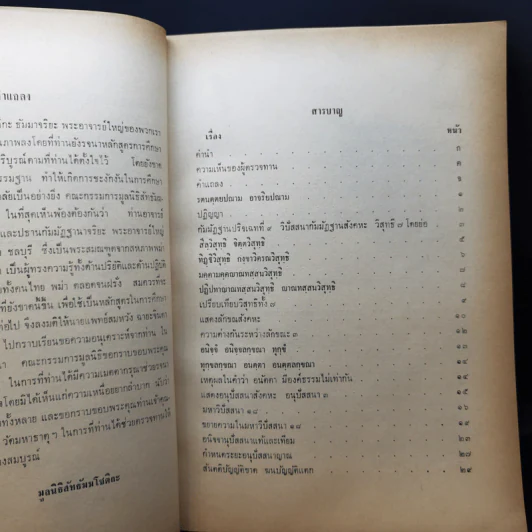 คำแถลง
ธัมมาจริยะ พระอาจารย์ใหญ่ของพวกเรา
โดยที่ท่านยังรจนาหลักสูตรการศึกษา
ริบูรณ์ตามที่ท่านได้ตั้งใจไว้ โดยยังขาด
รรมฐาน ทำให้เกิดการชะงักงันในการศึกษา
ลัยเป็นอย่างยิ่ง คณะกรรมการมูลนิธิสัทธัมม
ในที่สุดเห็นพ้องต้องกันว่า ท่านอาจารย์
และปธานกัมมัฏฐานาจริยะ พระอาจารย์ใหญ่
ชลบุรี ซึ่งเป็นพระสมณทูตจากสหภาพพม่า
เป็นผู้ทรงความรู้ทั้งด้านปริยัติและด้านปฏิบัติ
ทั้งคนไทย พม่า ตลอดจนฝรั่ง สมควรที่จะ
ที่ยังขาดขั้นนี้ เพื่อใช้เป็นหลักสูตรในการศึกษา
ต่อไป จึงลงมติให้นายแพทย์สมหวัง
ไปกราบเรียนขอความอนุเคราะห์จากท่าน ใน
คณะกรรมการมูลนิธิขอกราบขอบพระคุณ
ในการที่ท่านได้มีความเมตตากรุณาช่วย
โดยมิได้เห็นแก่ความเหนื่อยยากลำบาก นับว่า
ทั้งหลาย และขอกราบขอบพระคุณท่านเจ้าคุณ
วัดมหาธาตุฯ ในการที่ท่านได้ช่วยตรวจทานให้
องสมบูรณ์
มูลนิธิสัทธัมมโชติกะ
สารบาญ
เรื่อง หน้า
คำนำ ก
ความเห็นของผู้ตรวจทาน ค
คำแถลง ง
รตนตฺตยปณาม อาจริยปณาม ๑
ปฏิญญา ๒
กัมมัฏฐานปริจเฉทที่ ๙ วิปัสสนากัมมัฏฐานสังคหะ วิสุทธิ ๗ โดยย่อ ๓
สีลวิสุทธิ จิตตวิสุทธิ ๕
ทิฏฐิวิสุทธิ กงฺขาวิตรณวิสุทธิ ๖
มคฺคามคฺคญาณทสฺสนวิสุทธิ ๗
ปฏิปทาญาณทสฺสนวิสุทธิ ญาณทสฺสนวิสุทธิ ๘
เปรียบเทียบวิสุทธิทั้ง ๗ ๙
แสดงลักขณสังคหะ ๑๐
ความต่างกันระหว่างลักขณะ ๓ ๑๒
อนิจฺจํ อนิจฺจลกฺขณา ทุกฺขํ ๑๓
ทุกฺขลกฺขณา อนตฺตา อนตฺตลกฺขณา ๑๔
เหตุผลในคำว่า อนัตตา มีองค์ธรรมไม่เท่ากัน ๑๔
แสดงอนุปัสสนาสังคหะ อนุปัสสนา ๓ ๑๕
มหาวิปัสสนา ๑๘ ๑๖
ขยายความในมหาวิปัสสนา ๑๘ ๑๙
อนิจจานุปัสสนาแท้และเทียม ๒๓
กำหนดระยะอนุปัสสนาญาณ ๒๘
สันตติบัญญัติขาด ฆนบัญญัติแตก ๒๙